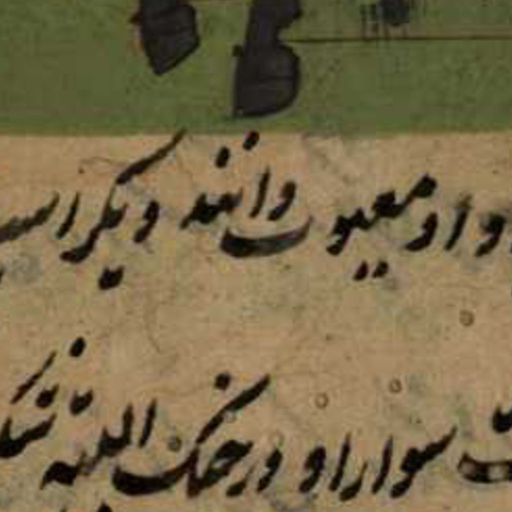 و او معیوب دانند دیکر اسپ
سوار او در جنک البته شک